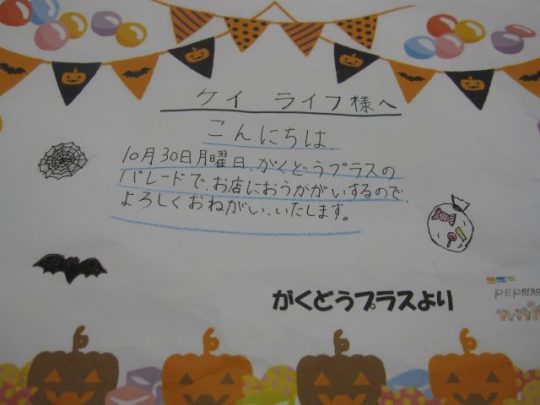 ケイ ライフ様へ
こんにちは
10月30日月曜日、がくどうプラスの
パレードで、お店におうががいするので、
よろしくおねがい、いたします。
がくどうプラスより